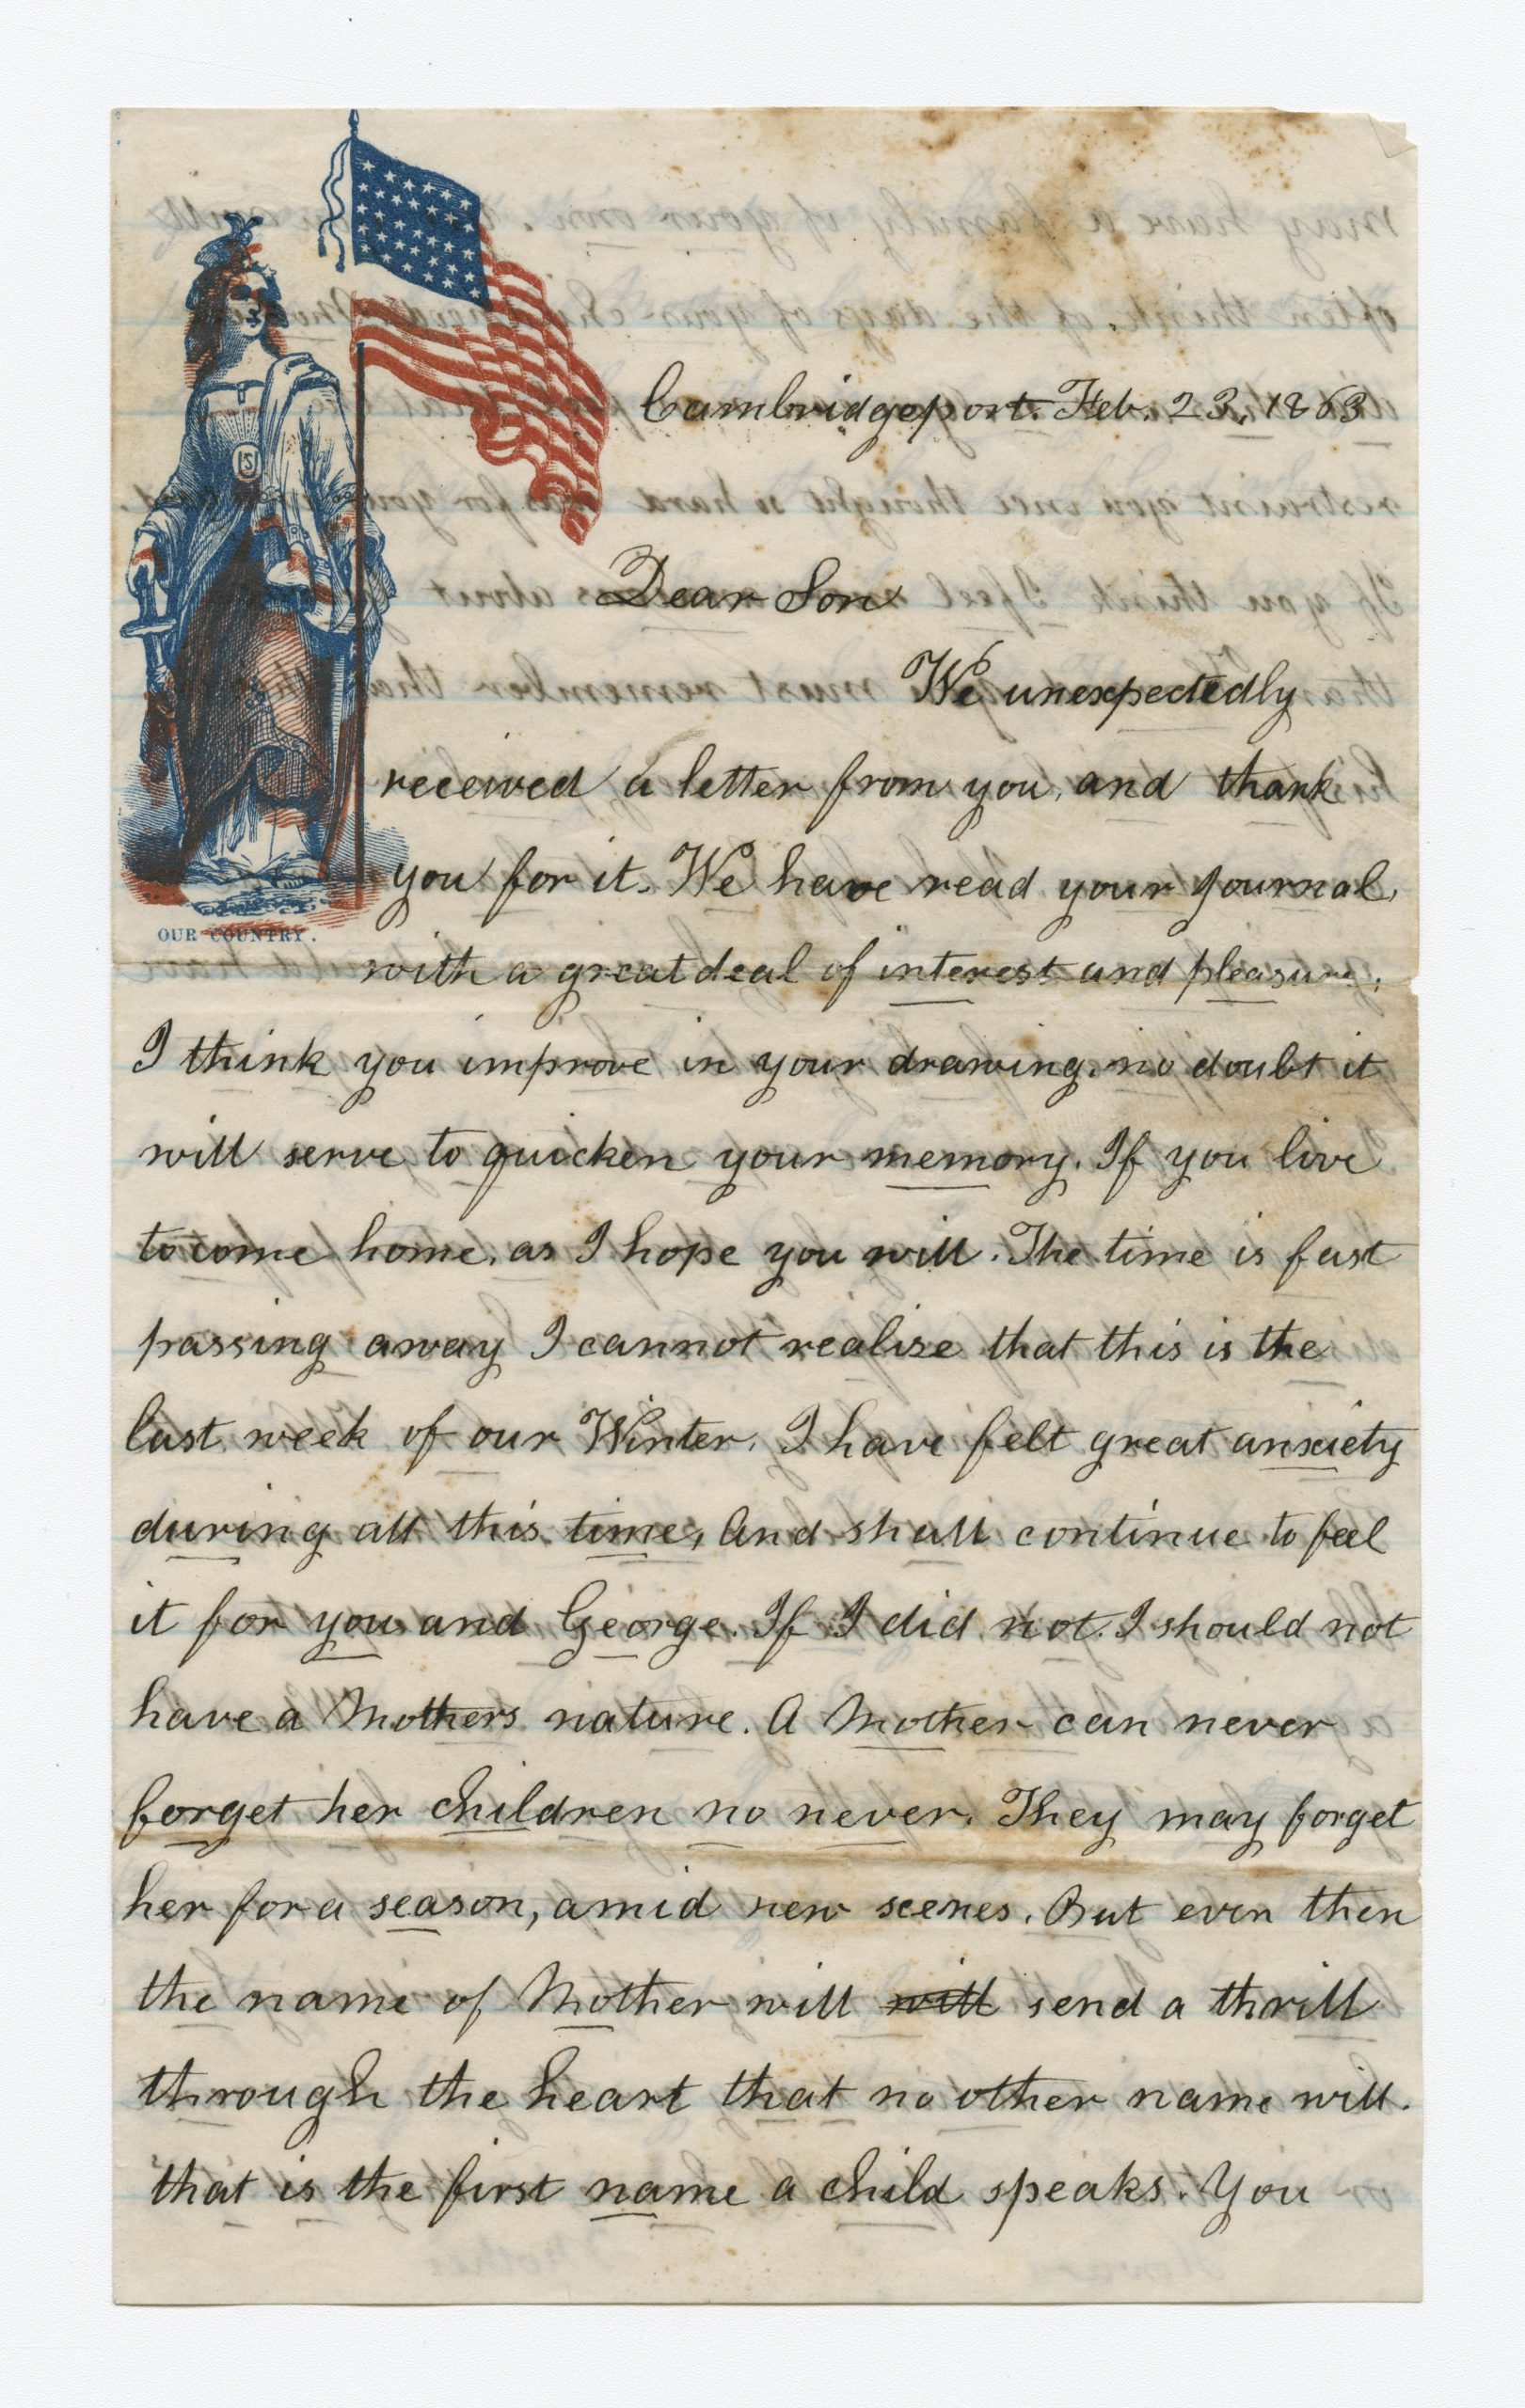 Cambridgeport. Feb. 23, 1863
Dear Son
We unexpectedly
received a letter from you, and thank
you for it. We have read your Journal,
with a great deal of interest and pleasure.
I think you improve in your drawing, no doubt it
will serve to quicken your memory. If you live
to come home, as I hope you will. The time is fast
passing away I cannot realise that this is the
last week of our Winter. I have felt great anxiety
during all this time, And shall continue to feel
it for you and George. If I did not. I should not
have a Mothers nature. A Mother can never
forget her children no never. They may forget
her for a season, amid new scenes. But even then
the name of Mother will will send a thrill
through the heart that no other name will.
that is the first name a child speaks. You
US
OUR COUNTRY.